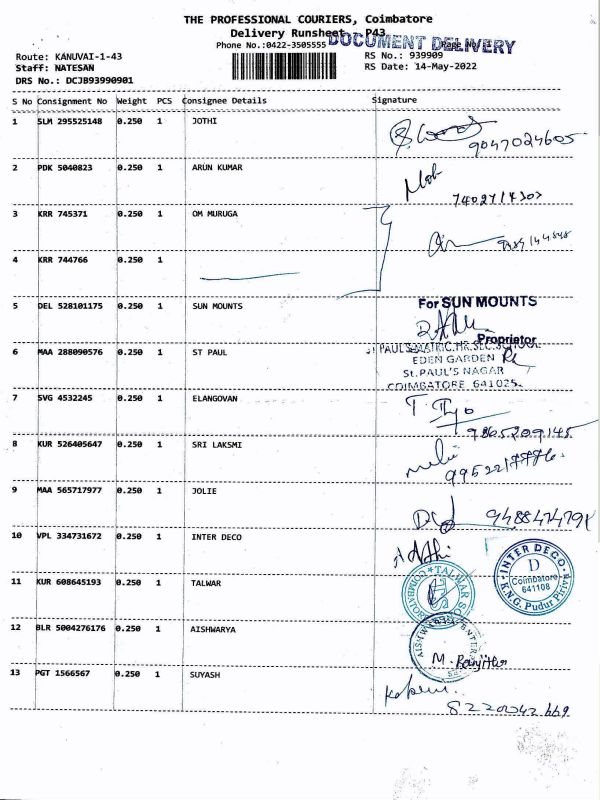 THE PROFESSIONAL COURIERS, Coimbatore
Delivery Runsheet P43
Phone No.:0422-3505555
DOCUMENT DELIVERY
Route: KANUVAI-1-43
RS No.: 939909
Staff: NATESAN
RS Date: 14-May-2022
DRS No.: DCJB93990901
S No Consignment No Weight PCS Consignee Details Signature
1 SLM 295525148 0.250 1 JOTHI
9047024605
2 PDK 5040823 0.250 1 ARUN KUMAR
3 KRR 745371 0.250 1 OM MURUGA
4 KRR 744766 0.250 1
5 DEL 528101175 0.250 1 SUN MOUNTS
For SUN MOUNTS
Proprietor
6 MAA 288090576 0.250 1 ST PAUL
St PAUL'S MATRIC.HR.SEC.SCHOOL
EDEN GARDEN
St.PAUL'S NAGAR
COIMBATORE 641025.
7 SVG 4532245 0.250 1 ELANGOVAN
9865209145
8 KUR 526405647 0.250 1 SRI LAKSMI
9 MAA 565717977 0.250 1 JOLIE
10 VPL 334731672 0.250 1 INTER DECO
INTER DECO
D
Coimbatore
641108
K.N.G. Pudur
11 KUR 608645193 0.250 1 TALWAR
TALWAR
COIMBATORE
12 BLR 5004276176 0.250 1 AISHWARYA
AISHWARYA
M. Ranjith
13 PGT 1566567 0.250 1 SUYASH
8220042669